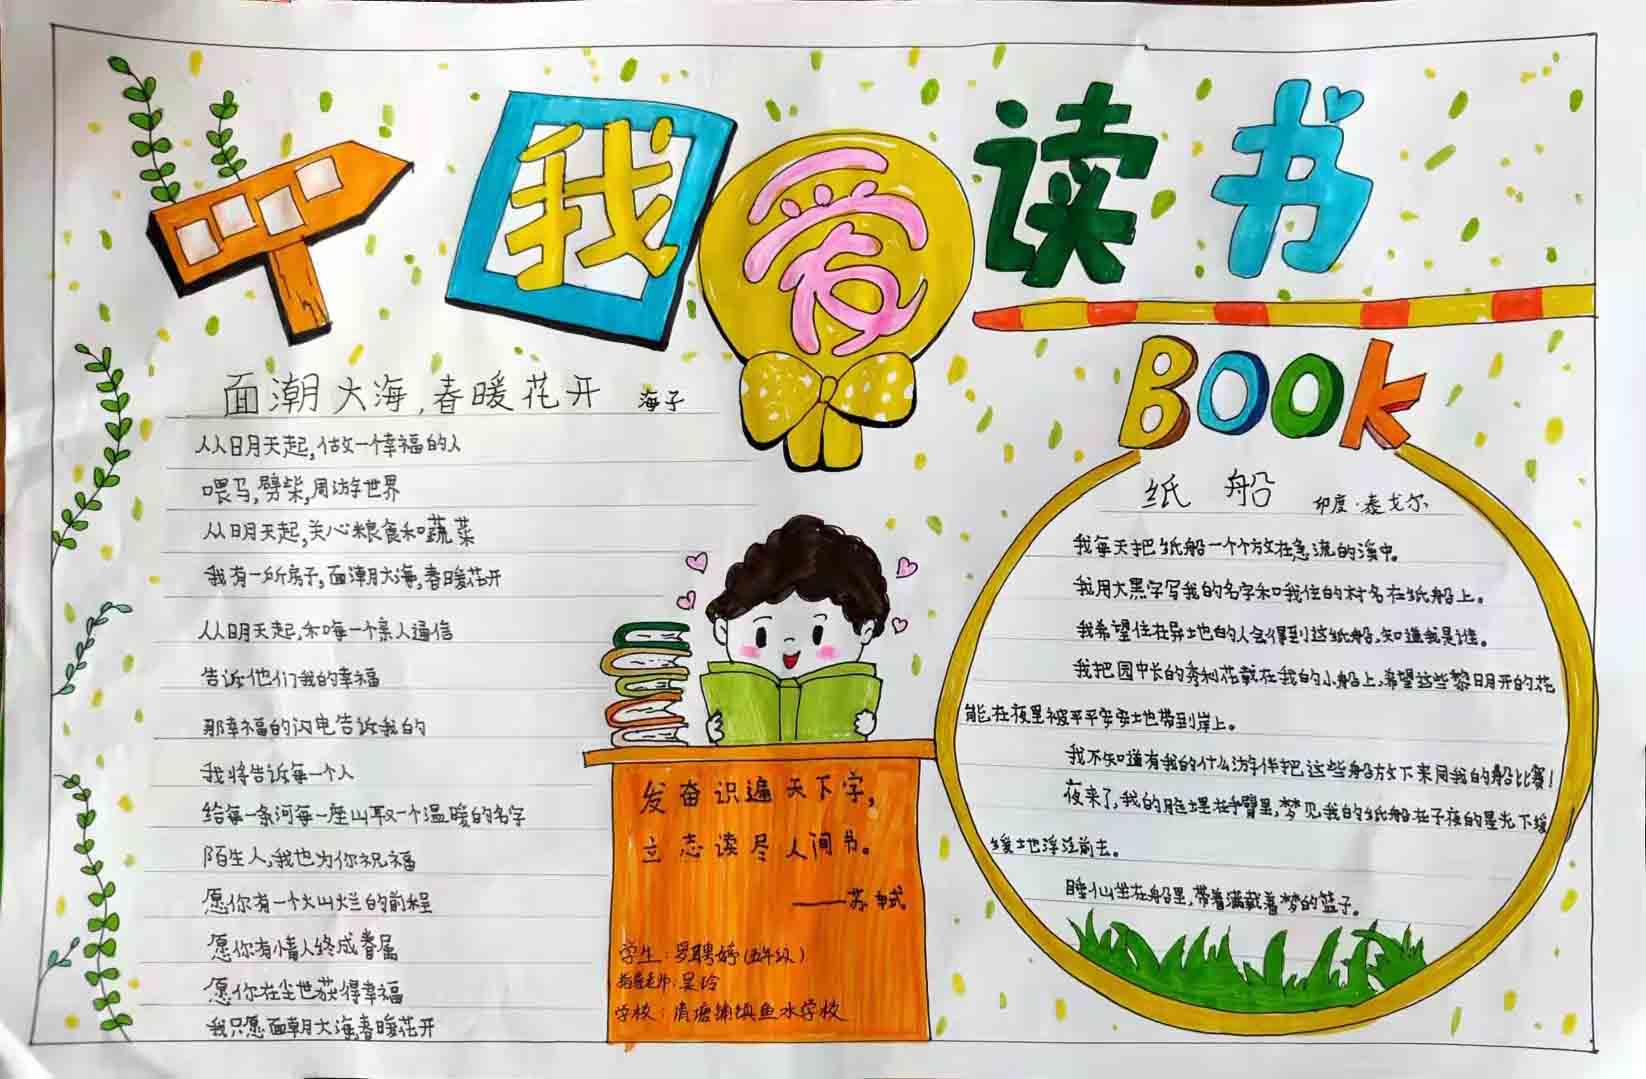 我爱读书
BOOK
面潮大海,春暖花开 海子
从从日月天起,做一个幸福的人
喂马,劈柴,周游世界
从明天起,关心粮食和蔬菜
我有一所房子,面潮大海,春暖花开
从从明天起,和每一个亲人通信
告诉他们我的幸福
那幸福的闪电告诉我的
我将告诉每一个人
给每一条河每一座山取一个温暖的名字
陌生人,我也为你祝福
愿你有一个火山烂的前程
愿你有情人终成眷属
愿你在尘世获得幸福
我只愿面朝大海,春暖花开
发奋识遍天下字,
立志读尽人间书。
——苏轼
学生:罗聘婷(五年级)
指导老师:吴玲
学校:清塘铺镇鱼水学校
纸船 印度·泰戈尔
我每天把纸船一个个放在急流的溪中。
我用大黑字写我的名字和我住的村名在纸船上。
我希望住在异地的人会得到这纸船,知道我是谁。
我把园中长的秀利花载在我的小船上,希望这些黎明开的花
能在夜里被平平安安地带到岸上。
我不知道有我的什么游伴把这些船放下来同我的船比赛!
夜来了,我的脸埋在手臂里,梦见我的纸船在子夜的星光下缓
缓地浮泛前去。
睡仙坐在船里,带着满载着梦的篮子。